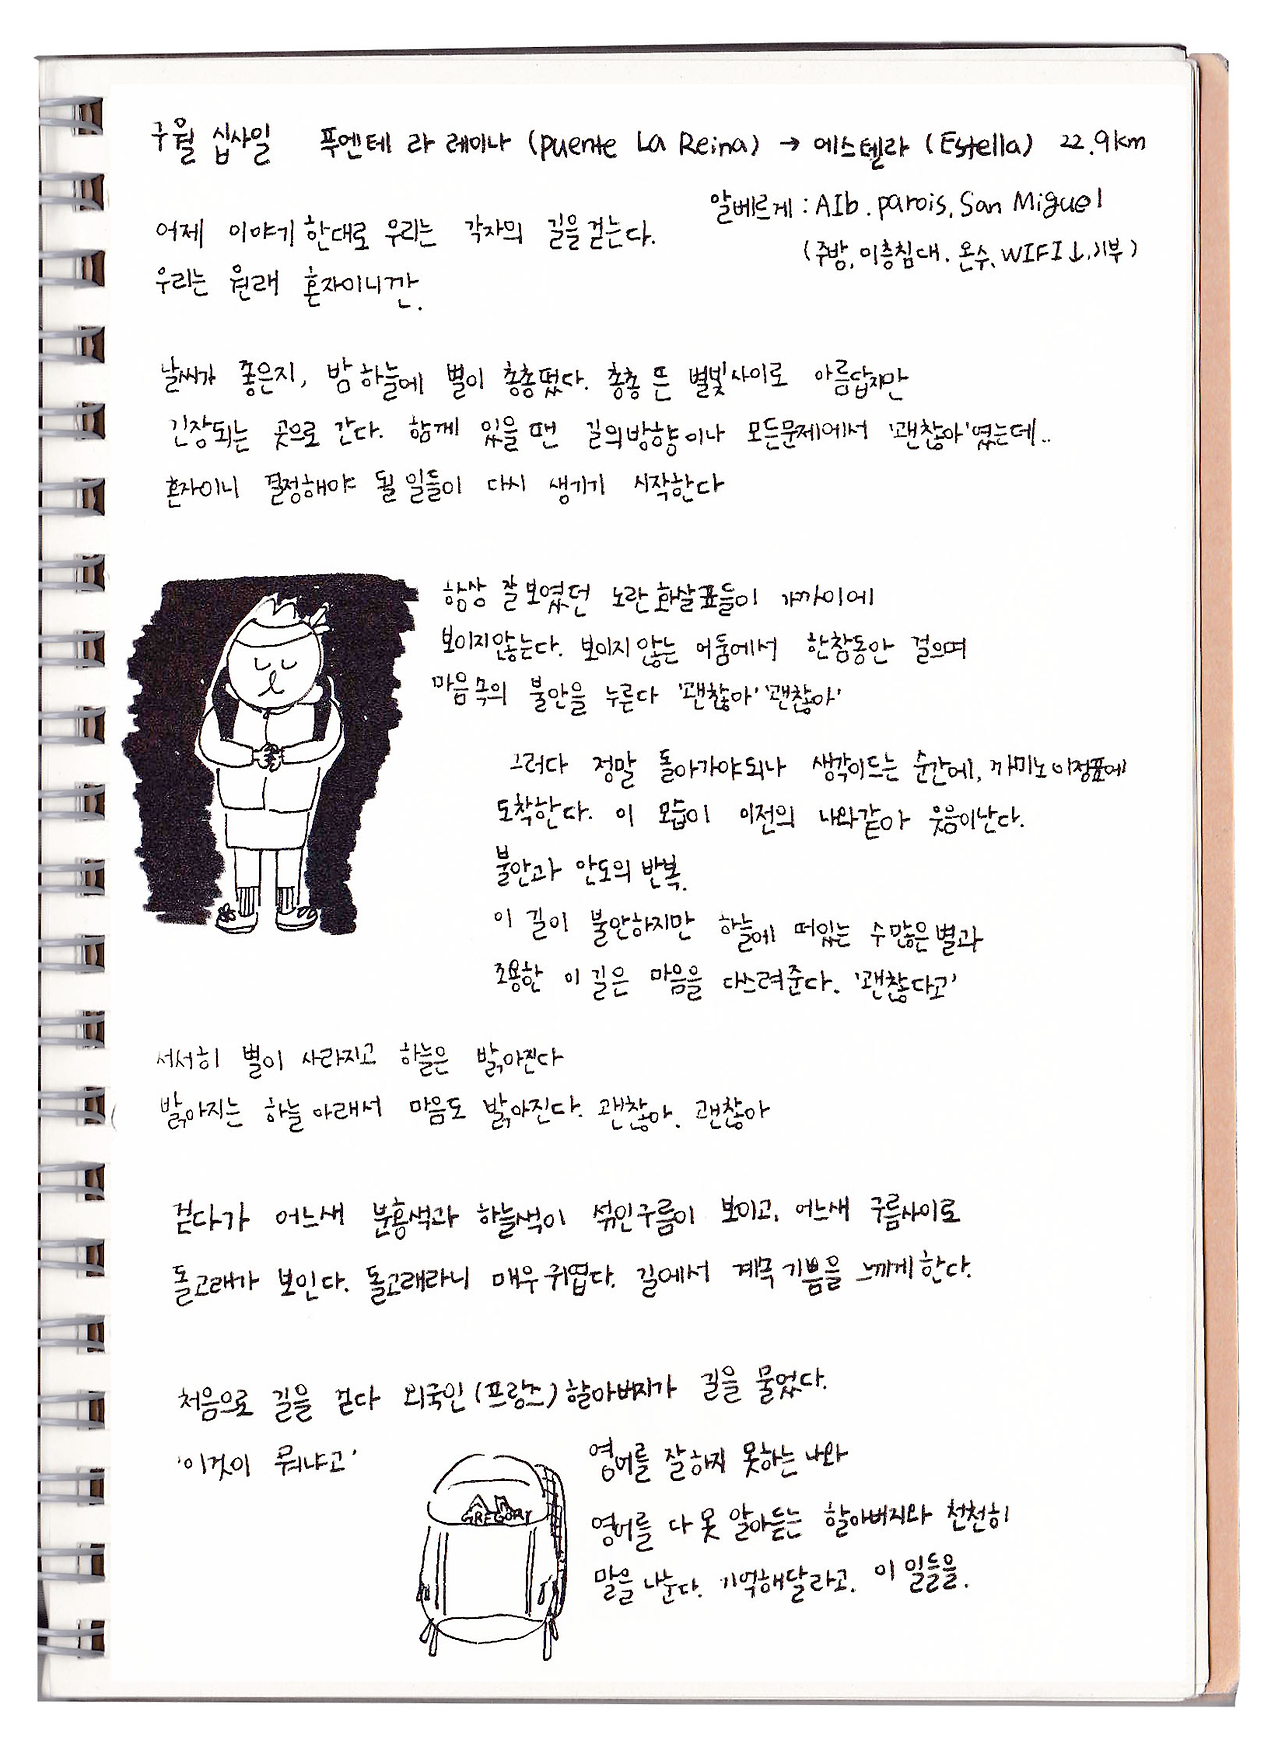 구월 십사일 푸엔테 라 레이나 (puente La Reina) → 에스텔라 (Estella) 22.9km
알베르게 : Alb. parois. San Miguel
(주방, 이층침대. 온수. WIFI↓. 기부)
어제 이야기 한대로 우리는 각자의 길을 걷는다.
우리는 원래 혼자이니깐.
날씨가 좋은지, 밤 하늘에 별이 총총떴다. 총총 뜬 별빛사이로 아름답지만
긴장되는 곳으로 간다. 함께 있을 땐 길의방향이나 모든문제에서 '괜찮아'였는데..
혼자이니 결정해야 될 일들이 다시 생기기 시작한다
항상 잘보였던 노란화살표들이 가까이에
보이지않는다. 보이지않는 어둠에서 한참동안 걸으며
마음속의 불안을 누른다 '괜찮아' '괜찮아'
그러다 정말 돌아가야되나 생각이드는 순간에, 까미노 이정표에
도착한다. 이 모습이 이전의 나와같아 웃음이난다.
불안과 안도의 반복.
이 길이 불안하지만 하늘에 떠있는 수많은 별과
조용한 이 길은 마음을 다스려준다. '괜찮다고'
서서히 별이 사라지고 하늘은 밝아진다
밝아지는 하늘 아래서 마음도 밝아진다. 괜찮아. 괜찮아
걷다가 어느새 분홍색과 하늘색이 섞인구름이 보이고, 어느새 구름사이로
돌고래가 보인다. 돌고래라니 매우 귀엽다. 길에서 계속 기쁨을 느끼게 한다.
처음으로 길을 걷다 외국인 (프랑스) 할아버지가 길을 물었다.
'이것이 뭐냐고'
GREGORY
영어를 잘하지 못하는 나와
영어를 다 못 알아듣는 할아버지와 천천히
말을 나눈다. 기억해달라고. 이 일들을.